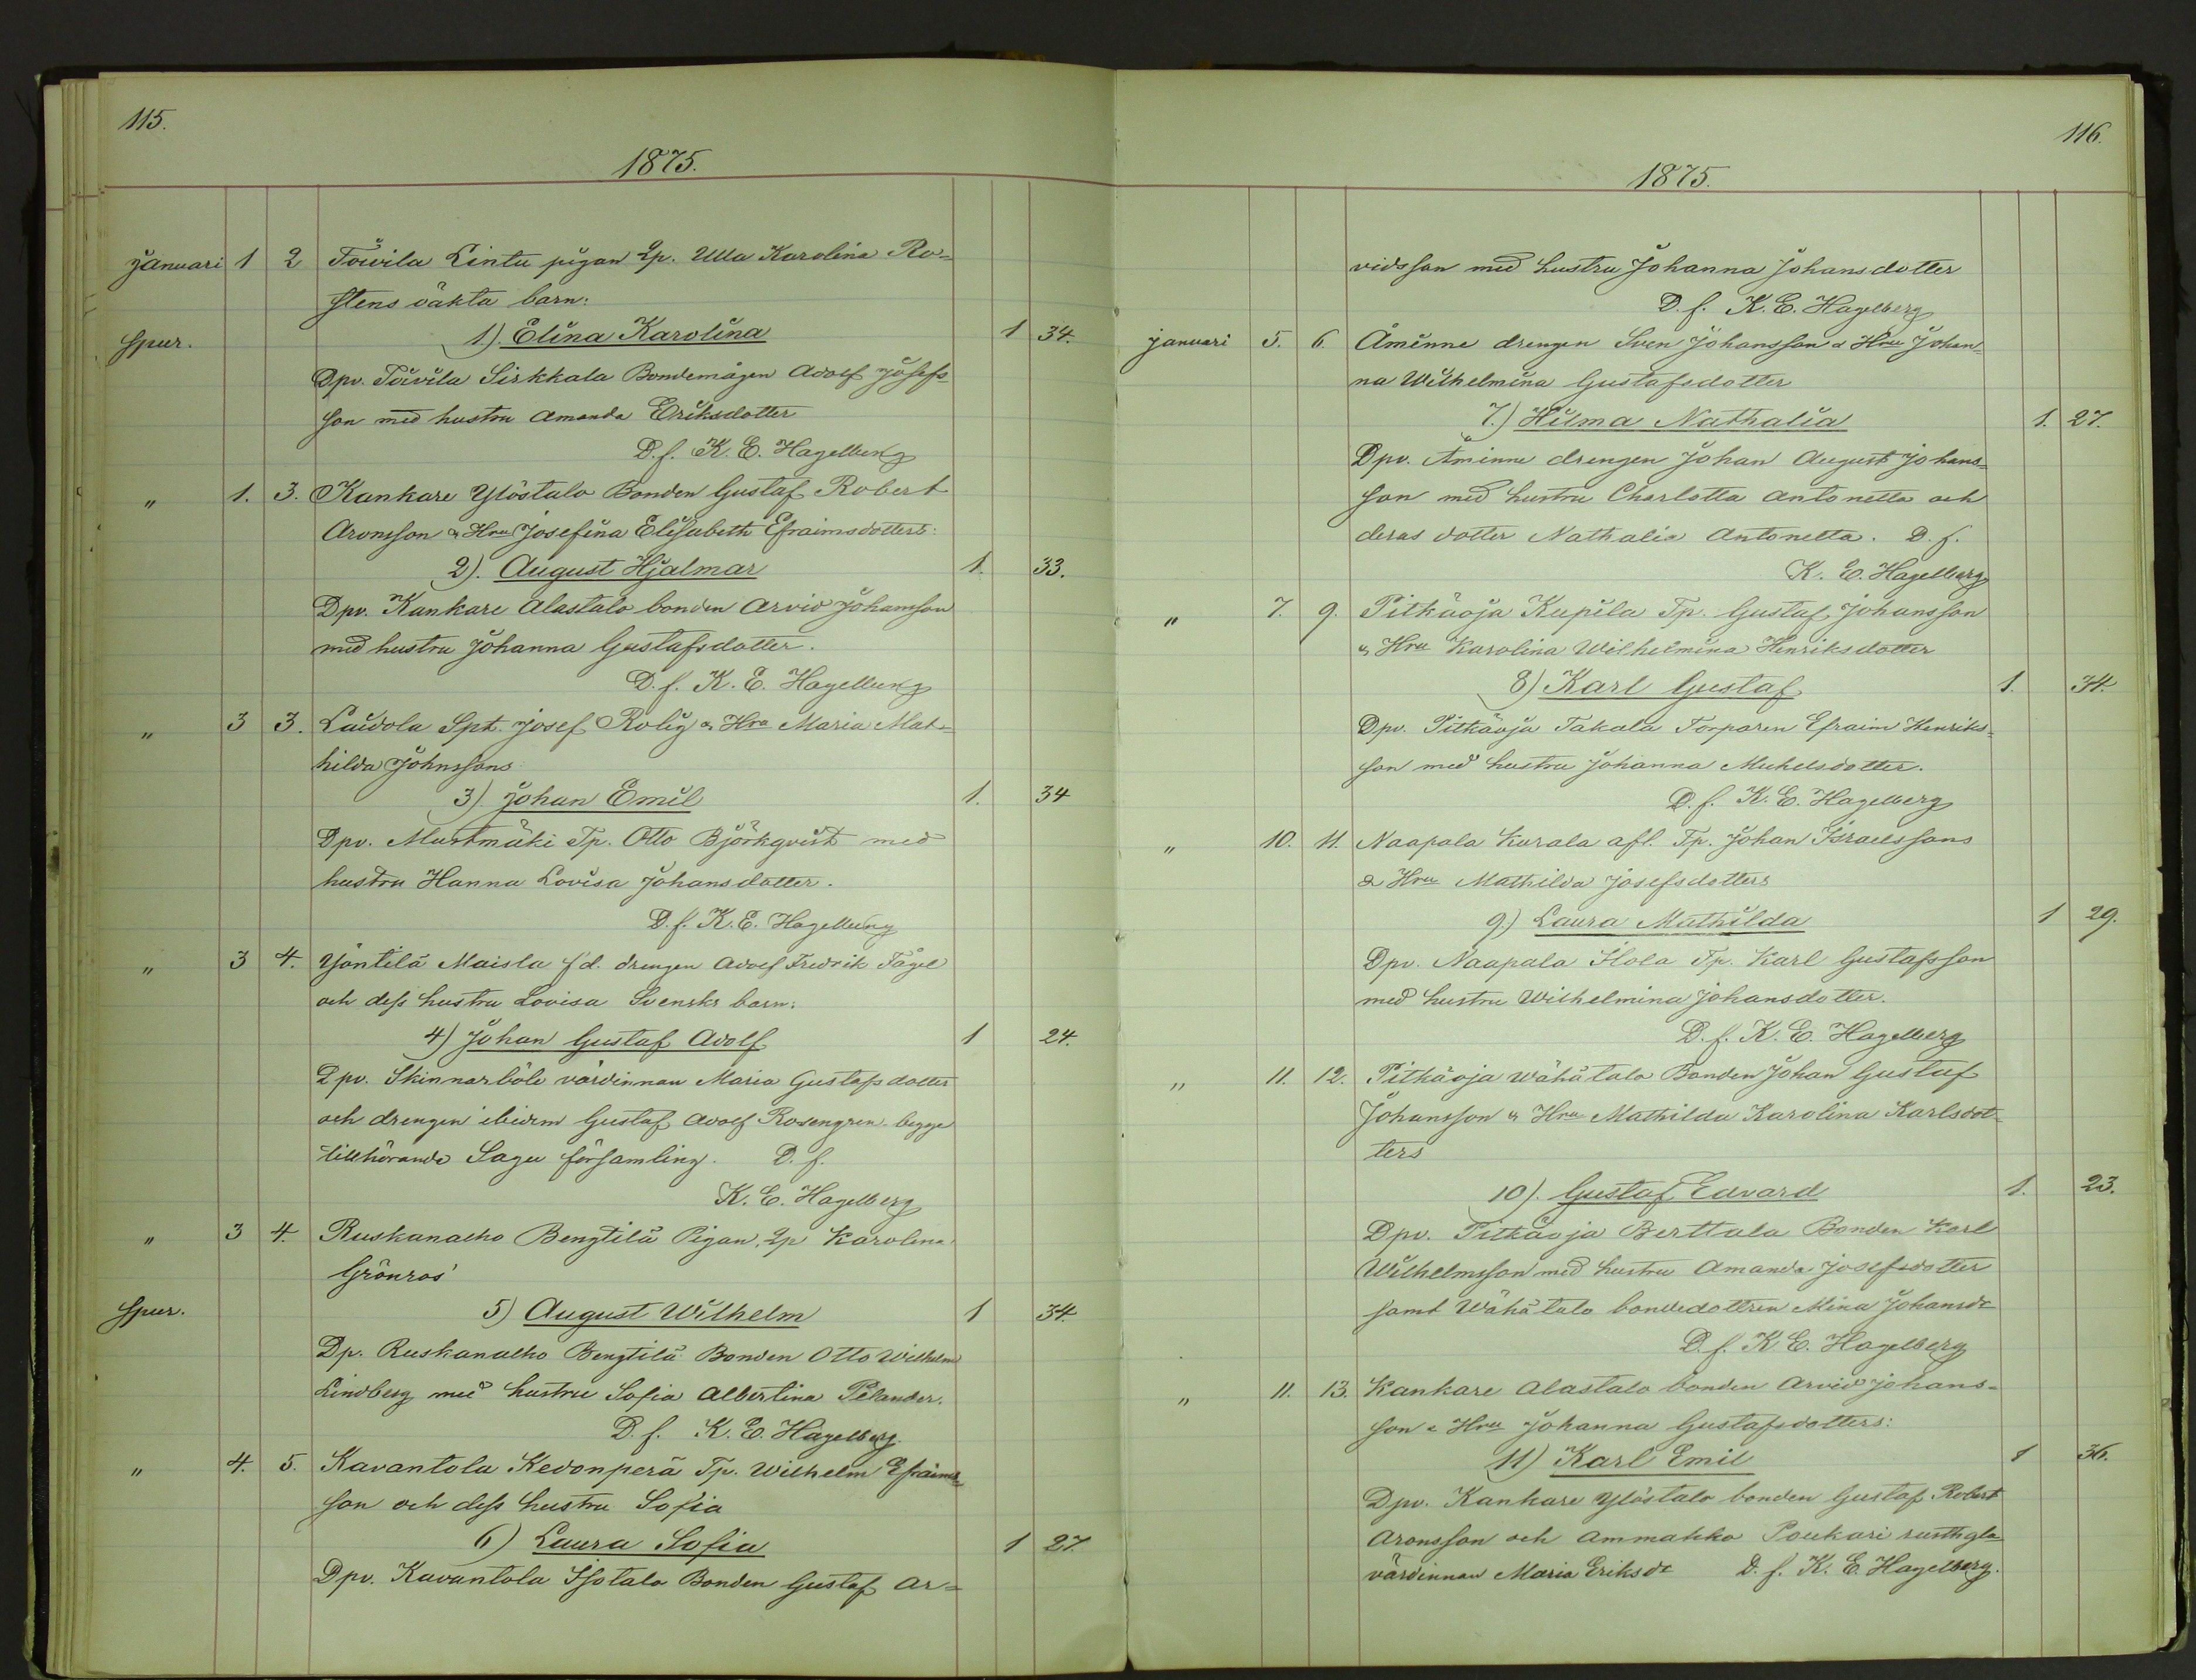 115.
1875.
Januari 1 2 Toivila Lintu pigan Lp. Ulla Karolina Ro-
stens oäkta barn:
spur. 1). Elina Karolina 1 34.
Dpv. Toivila Sirkkala Bondemågen Adolf Josefs-
son med hustru Amanda Eriksdotter
D.f. K. E. Hagelberg
" 1. 3. Kankare Ylöstalo Bonden Gustaf Robert
Aronsson & Hru Josefina Elisabeth Efraimsdotters:
2). August Hjalmar 1. 33.
Dpv. Kankare Alastalo bonden Arvid Johansson
med hustru Johanna Gustafsdotter.
D.f. K. E. Hagelberg
" 3 3. Laidola Spt. Josef Rolig & Hru Maria Mat-
hilda Johnssons
3). Johan Emil 1. 34
Dpv. Mustmäki Tp. Otto Björkqvist med
hustru Hanna Lovisa Johansdotter.
D.f. K. E. Hagelberg
" 3 4. Yöntilä Maisla f.d. drengen Adolf Fredrik Fågel
och dess hustru Lovisa Svensks barn:
4) Johan Gustaf Adolf 1 24.
Dpv. Skinnarböle värdinnan Maria Gustafsdotter
och drengen ibidem Gustaf Adolf Rosengren begge
tillhörande Sagu församling. D. f.
K. E. Hagelberg
" 3 4. Ruskanalho Bengtilä Pigan Lp Karolina
Grönros'
spur. 5) August Wilhelm 1 34.
Dp. Ruskanalho Bengtilä Bonden Otto Wilhelm
Lindberg med hustru Sofia Albertina Pelander.
D. f. K. E. Hagelberg.
" 4. 5. Kavantola Kedonperä Tp. Wilhelm Efraims-
son och dess hustru Sofia
6) Laura Sofia 1 27.
Dpv. Kavantola Isotalo Bonden Gustaf Ar-
116.
1875.
vidsson med hustru Johanna Johansdotter
D. f. K. E. Hagelberg
januari 5. 6. Åminne drengen Sven Johansson & Hru Johan-
na Wilhelmina Gustafsdotter
7.) Hilma Nathalia 1. 27.
Dpv. Åminne drengen Johan August Johans-
son med hustru Charlotta Antonetta och
deras dotter Nathalia Antonetta. D. f.
K. E. Hagelberg
" 7. 9. Pitkäoja Kupila Tp. Gustaf Johansson
& Hru Karolina Wilhelmina Henriksdotter
8) Karl Gustaf 1. 34.
Dpv. Pitkäoja Takala Torparen Efraim Henriks-
son med hustru Johanna Mickelsdotter.
D. f. K. E. Hagelberg
" 10. 11. Naapala Karala afl. Tp. Johan Israelssons
& Hru Mathilda Josefsdotters
9.) Laura Mathilda 1 29.
Dpv. Naapala Hola Tp. Karl Gustafsson
med hustru Wilhelmina Johansdotter.
D. f. K. E. Hagelberg
" 11. 12. Pitkäoja Wähätalo Bonden Johan Gustaf
Johansson & Hru Mathilda Karolina Karlsdot-
ters
10). Gustaf Edvard 1. 23.
Dpv. Pitkäoja Berttala Bonden Karl
Wilhelmsson med hustru Amanda Josefsdotter
samt Wähätalo bondedottren Mina Johansdr
D. f. K. E. Hagelberg
" 11. 13. Kankare Alastalo bonden Arvid Johans-
son & Hru Johanna Gustafsdotters:
11) Karl Emil 1 36.
Dpv. Kankare Ylöstalo bonden Gustaf Robert
Aronsson och Ammakko Poukari
värdinnan Maria Eriksdr D. f. K. E. Hagelberg.